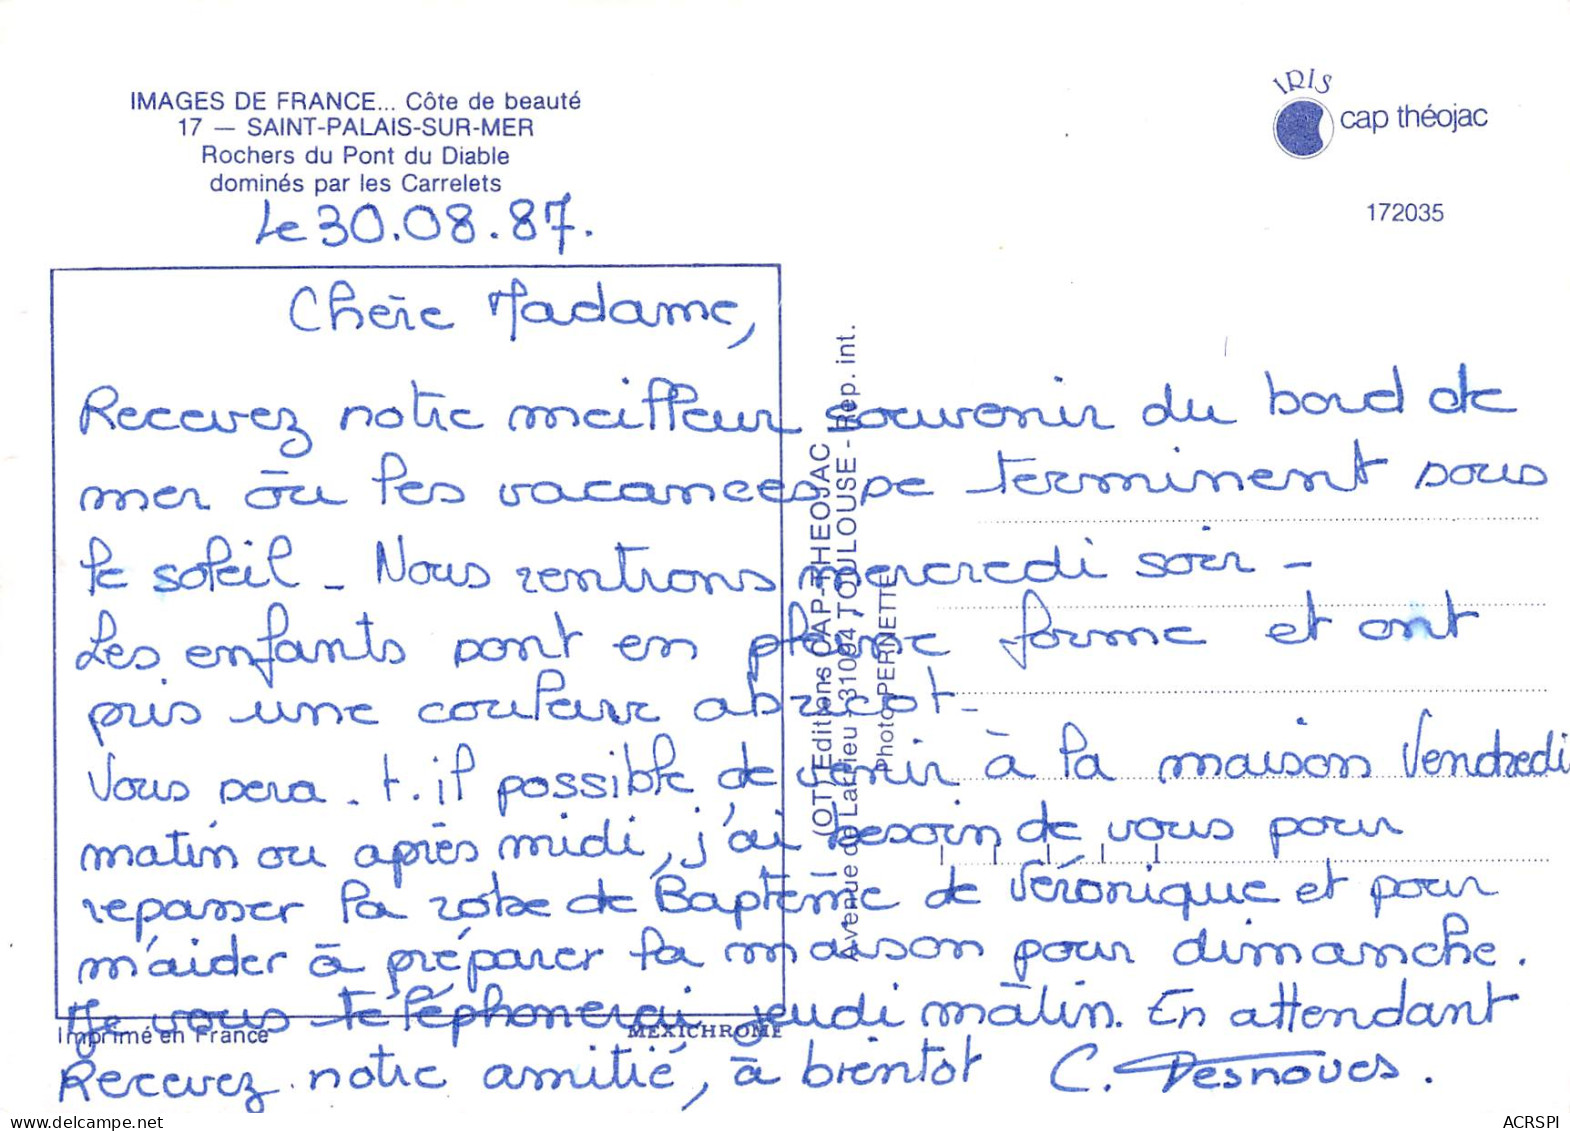 IMAGES DE FRANCE... Côte de beauté
17 — SAINT-PALAIS-SUR-MER
Rochers du Pont du Diable
dominés par les Carrelets
IRIS
cap théojac
172035
Le 30.08.87.
Chère Madame,
Recevez notre meilleur souvenir du bord de
mer où les vacances se terminent sous
le soleil - Nous rentrons mercredi soir -
Les enfants sont en pleine forme et ont
pris une couleur abricot -
Vous sera . t . il possible de venir à la maison Vendredi
matin ou après midi, j'ai besoin de vous pour
repasser la robe de Baptême de Véronique et pour
m'aider à préparer la maison pour dimanche.
Je vous téléphonerai jeudi matin. En attendant
Recevez notre amitié, à bientôt C. Desnoues.
(OTT) Editions CAP-THEOJAC
Avenue de Larrieu - 31094 TOULOUSE - Rep. int.
Photo PERNETTE
Imprimé en France
MEXICHROME
delcampe.net
ACRSPI